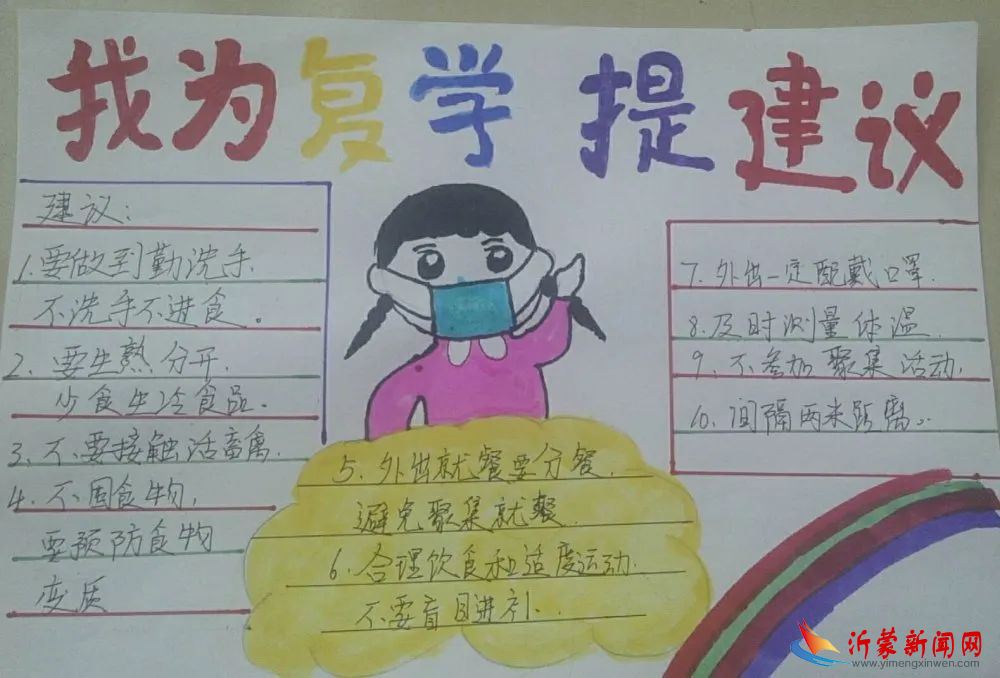 我为复学提建议
建议:
1.要做到勤洗手.
不洗手不进食。
2.要生熟分开.
少食生冷食品.
3.不要接触活畜禽.
4.不囤食物,
要预防食物
变质
5.外出就餐要分餐.
避免聚集就餐.
6.合理饮食和适度运动.
不要盲目进补.
7.外出一定配戴口罩.
8.及时测量体温.
9.不参加聚集活动.
10.间隔两米距离.
沂蒙新闻网
www.yimengxinwen.com